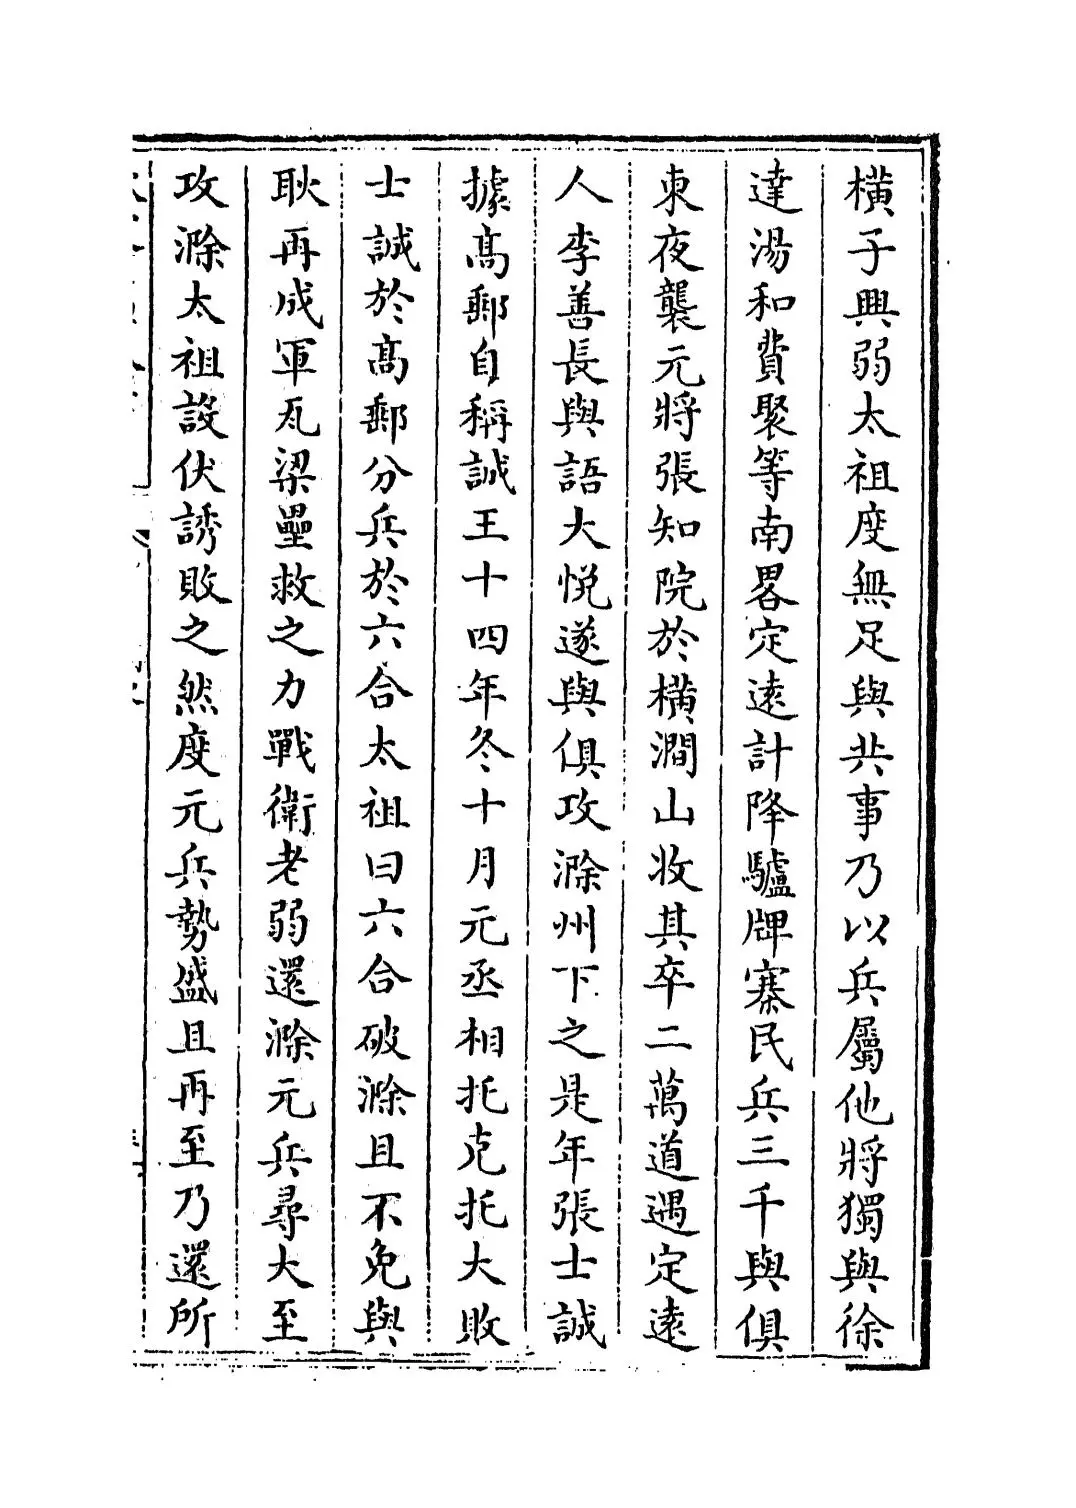 橫子興弱太祖度無足與共事乃以兵屬他將獨與徐
達湯和費聚等南畧定遠計降驢牌寨民兵三千與俱
東夜襲元將張知院於橫澗山收其卒二萬道遇定遠
人李善長與語大悅遂與俱攻滁州下之是年張士誠
據高郵自稱誠王十四年冬十月元丞相托克托大敗
士誠於高郵分兵於六合太祖曰六合破滁且不免與
耿再成軍瓦梁壘救之力戰衛老弱還滁元兵尋大至
攻滁太祖設伏誘敗之然度元兵勢盛且再至乃還所